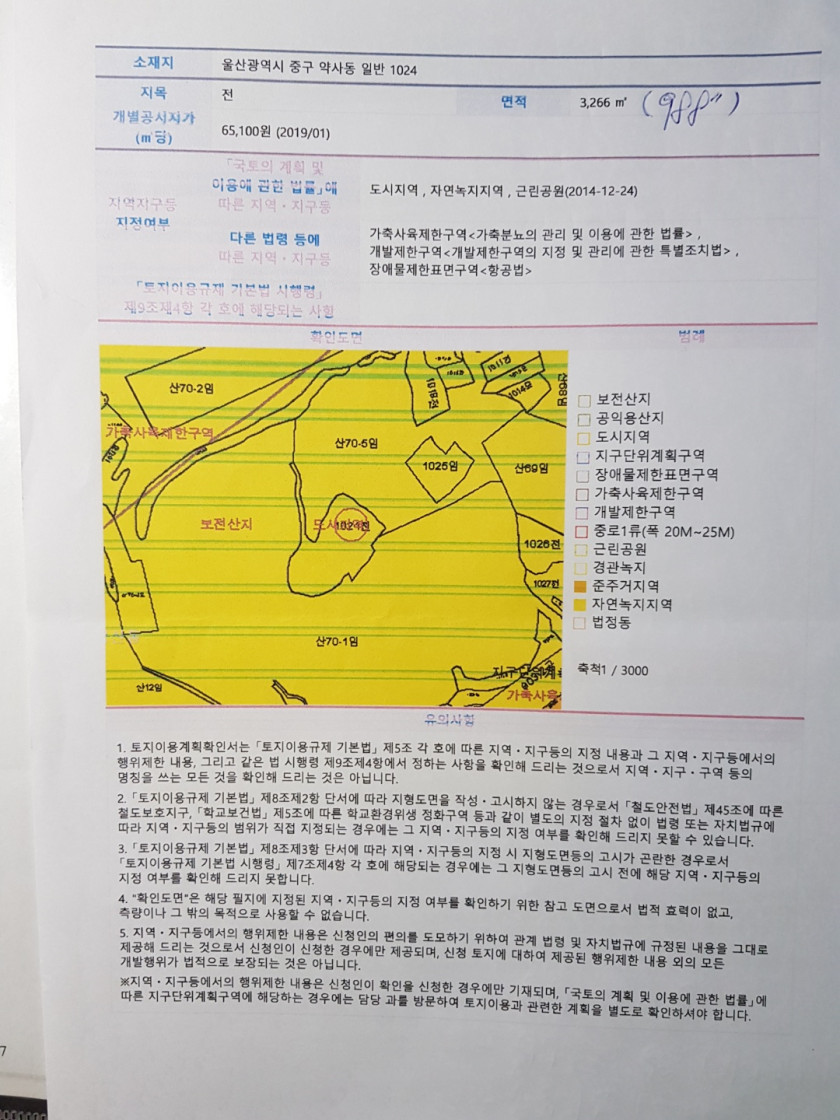 소재지 울산광역시 중구 약사동 일반 1024
지목 전 면적 3,266 ㎡ (988")
개별공시지가
(㎡당) 65,100원 (2019/01)
지역지구등
지정여부
「국토의 계획 및
이용에 관한 법률」에
따른 지역・지구등
도시지역 , 자연녹지지역 , 근린공원(2014-12-24)
다른 법령 등에
따른 지역・지구등
가축사육제한구역<가축분뇨의 관리 및 이용에 관한 법률> ,
개발제한구역<개발제한구역의 지정 및 관리에 관한 특별조치법> ,
장애물제한표면구역<항공법>
「토지이용규제 기본법 시행령」
제9조제4항 각 호에 해당되는 사항
확인도면 범례
산70-2임
가축사육제한구역
산70-5임
1019전
1014전
산68임
1025임
산69임
보전산지
도시지역
1024전
1026전
1027전
산70-1임
산12임
지구단위계획
가축사육
보전산지
공익용산지
도시지역
지구단위계획구역
장애물제한표면구역
가축사육제한구역
개발제한구역
중로1류(폭 20M~25M)
근린공원
경관녹지
준주거지역
자연녹지지역
법정동
축척1 / 3000
유의사항
1. 토지이용계획확인서는 「토지이용규제 기본법」 제5조 각 호에 따른 지역・지구등의 지정 내용과 그 지역・지구등에서의
행위제한 내용, 그리고 같은 법 시행령 제9조제4항에서 정하는 사항을 확인해 드리는 것으로서 지역・지구・구역 등의
명칭을 쓰는 모든 것을 확인해 드리는 것은 아닙니다.
2. 「토지이용규제 기본법」 제8조제2항 단서에 따라 지형도면을 작성・고시하지 않는 경우로서 「철도안전법」 제45조에 따른
철도보호지구, 「학교보건법」 제5조에 따른 학교환경위생 정화구역 등과 같이 별도의 지정 절차 없이 법령 또는 자치법규에
따라 지역・지구등의 범위가 직접 지정되는 경우에는 그 지역・지구등의 지정 여부를 확인해 드리지 못할 수 있습니다.
3. 「토지이용규제 기본법」 제8조제3항 단서에 따라 지역・지구등의 지정 시 지형도면등의 고시가 곤란한 경우로서
「토지이용규제 기본법 시행령」 제7조제4항 각 호에 해당되는 경우에는 그 지형도면등의 고시 전에 해당 지역・지구등의
지정 여부를 확인해 드리지 못합니다.
4. "확인도면"은 해당 필지에 지정된 지역・지구등의 지정 여부를 확인하기 위한 참고 도면으로서 법적 효력이 없고,
측량이나 그 밖의 목적으로 사용할 수 없습니다.
5. 지역・지구등에서의 행위제한 내용은 신청인의 편의를 도모하기 위하여 관계 법령 및 자치법규에 규정된 내용을 그대로
제공해 드리는 것으로서 신청인이 신청한 경우에만 제공되며, 신청 토지에 대하여 제공된 행위제한 내용 외의 모든
개발행위가 법적으로 보장되는 것은 아닙니다.
※지역・지구등에서의 행위제한 내용은 신청인이 확인을 신청한 경우에만 기재되며, 「국토의 계획 및 이용에 관한 법률」에
따른 지구단위계획구역에 해당하는 경우에는 담당 과를 방문하여 토지이용과 관련한 계획을 별도로 확인하셔야 합니다.
7